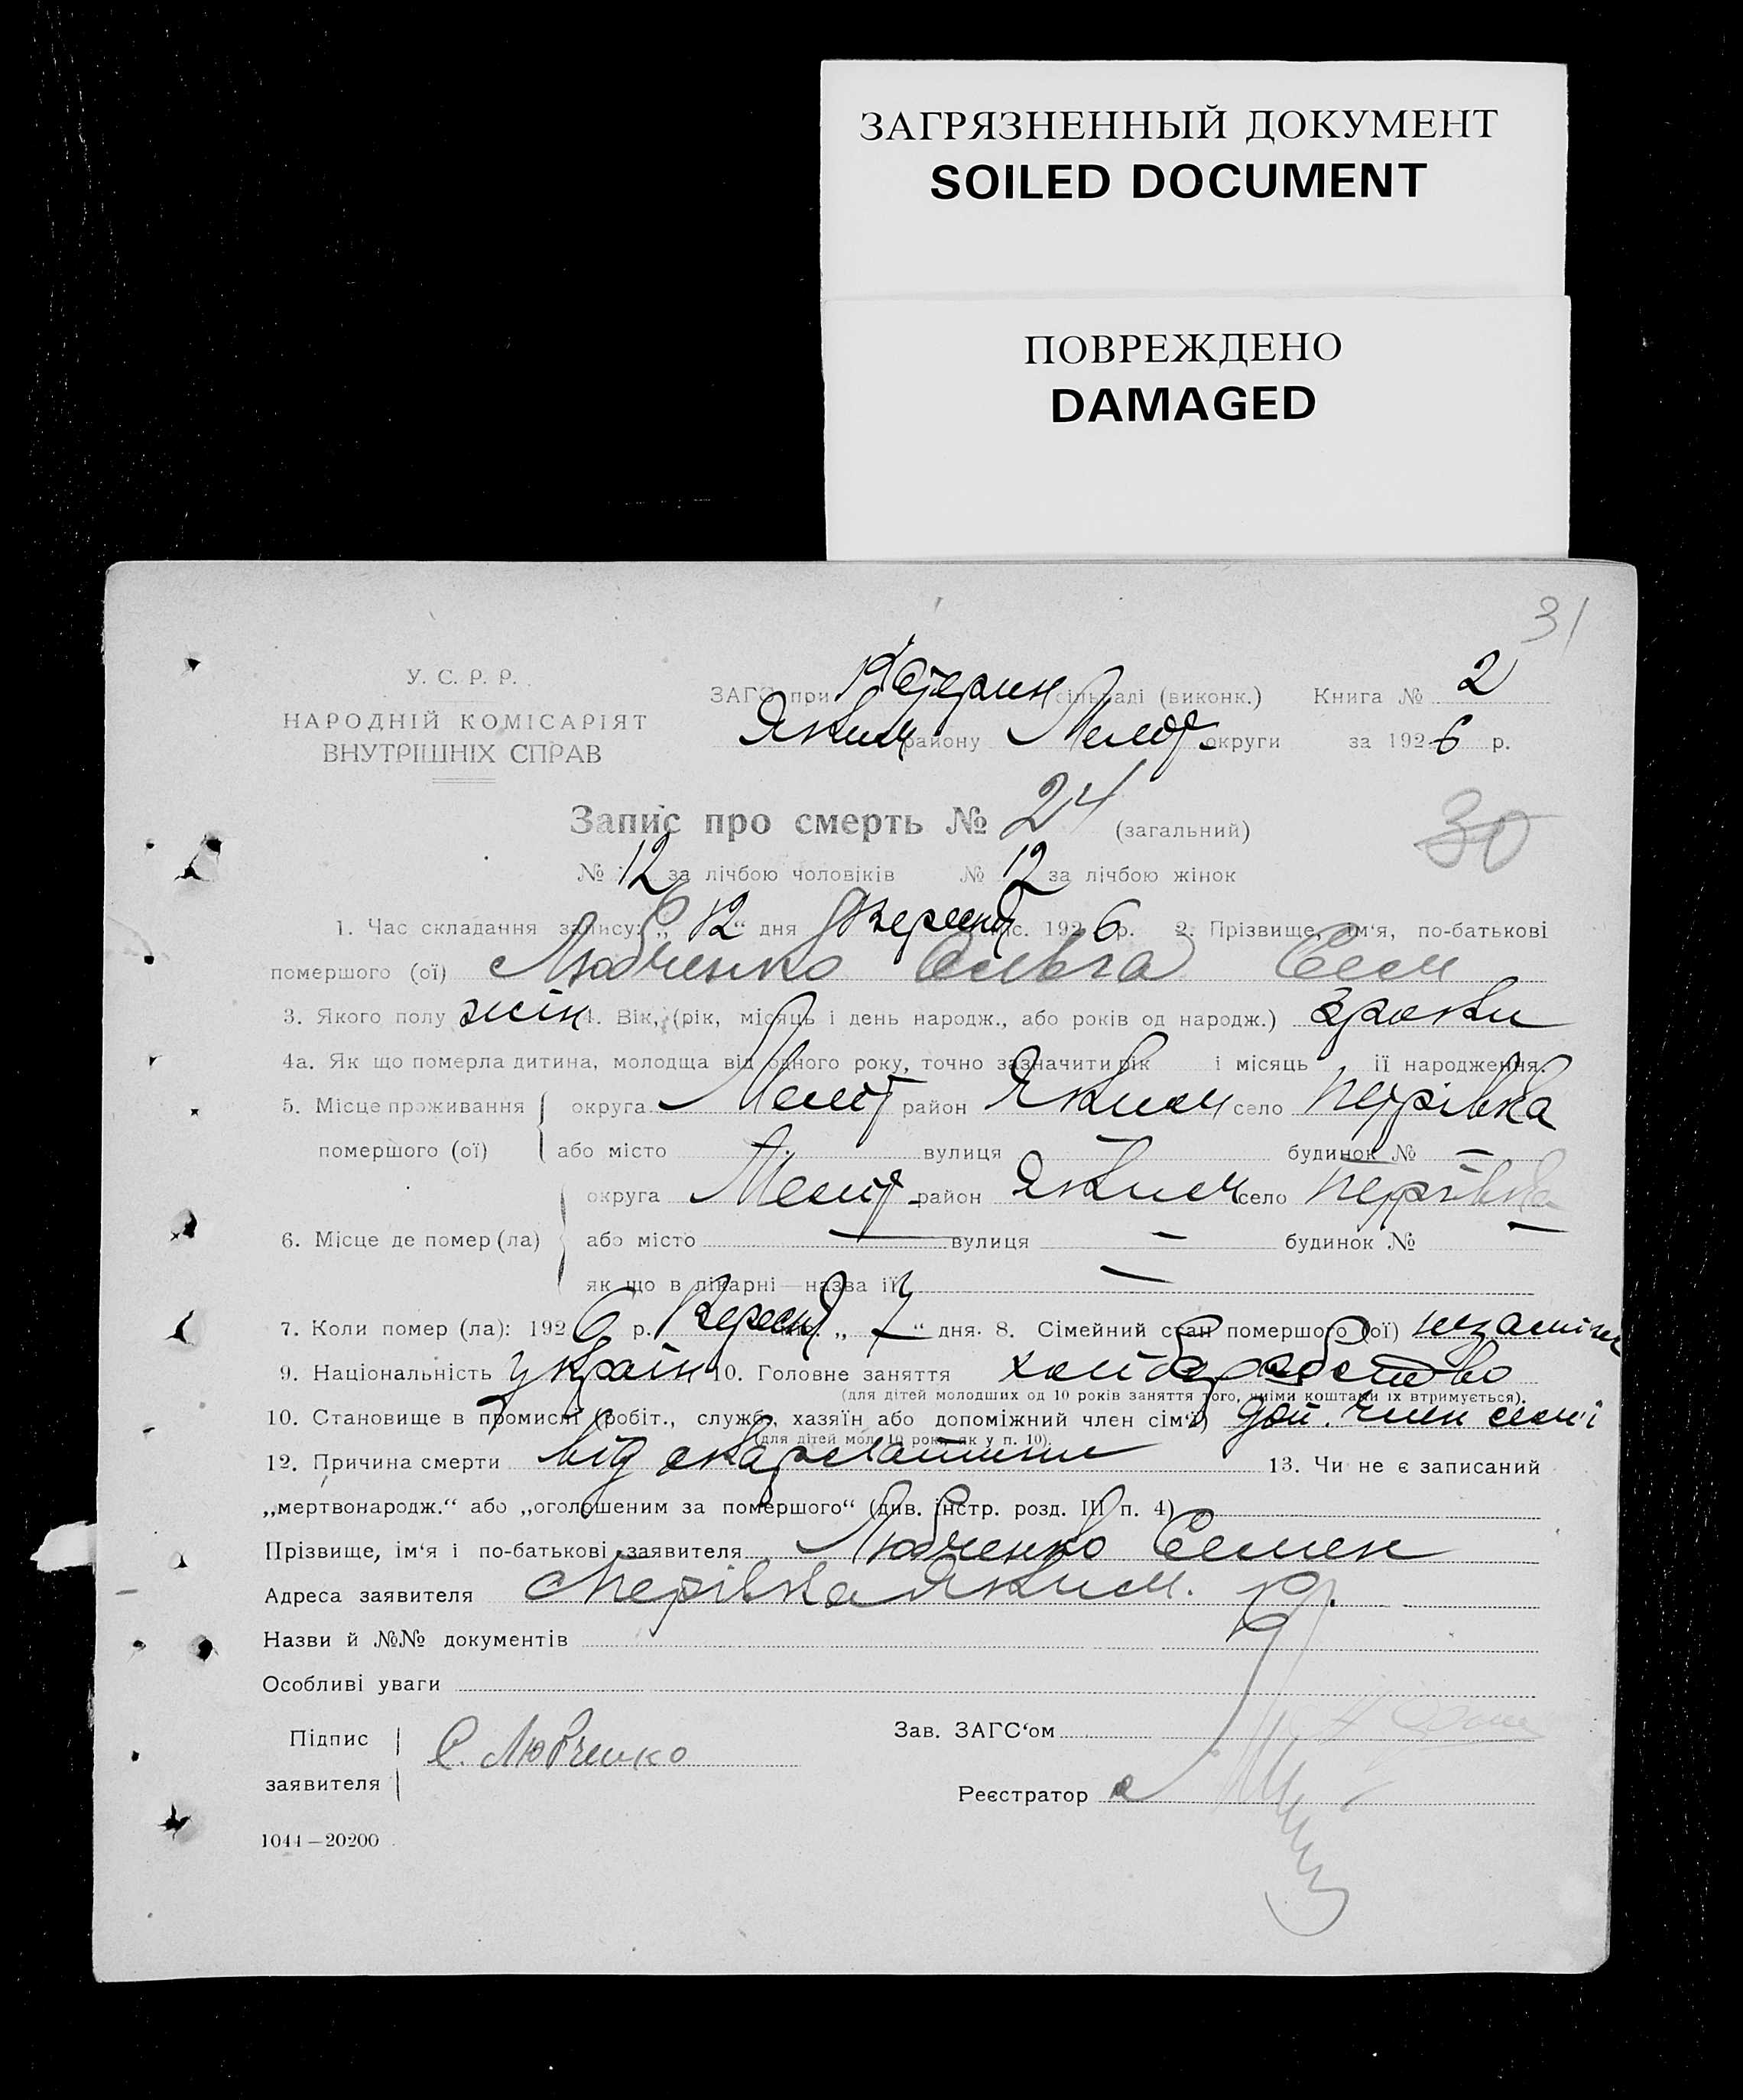 ЗАГРЯЗНЕННЫЙ ДОКУМЕНТ
SOILED DOCUMENT
ПОВРЕЖДЕНО
DAMAGED
31
У. С. Р. Р.
НАРОДНІЙ КОМІСАРІЯТ
ВНУТРІШНІХ СПРАВ
ЗАГС при сільраді (виконк.) Книга № 2
Яким району Меліт округи за 1926 р.
Запис про смерть № 24 (загальний)
30
№ 12 за лічбою чоловіків № 12 за лічбою жінок
1. Час складання запису: „12“ дня Вересня міс. 1926 р. 2. Прізвище, ім'я, по-батькові
помершого (ої) Любченко Ольга Сем
3. Якого полу жін 4. Вік, (рік, місяць і день народж., або років од народж.) 3 роки
4а. Як що померла дитина, молодща від одного року, точно зазначити рік і місяць її народження.
5. Місце проживання помершого (ої) округа Меліт район Яким село Петрівка
або місто вулиця — будинок № —
6. Місце де помер (ла) округа Меліт район Яким село Петрівка
або місто — вулиця — будинок № —
як що в лікарні—назва її —
7. Коли помер (ла): 1926 р. Вересня „7“ дня. 8. Сімейний стан помершого (ої) незаміж
9. Національність україн 10. Головне заняття хліборобство
(для дітей молодших од 10 років заняття того, чиіми коштами їх втримується).
10. Становище в промислі (робіт., службо, хазяїн або допоміжний член сім'ї) доп. член сем'і
(для дітей мол. 10 років як у п. 10).
12. Причина смерти від скарлатини 13. Чи не є записаний
„мертвонародж.“ або „оголошеним за помершого“ (див. інстр. розд. III п. 4)
Прізвище, ім'я і по-батькові заявителя Любченко Семен
Адреса заявителя с Петрівка Яким. р.
Назви й №№ документів
Особливі уваги
Підпис заявителя С. Любченко
Зав. ЗАГС'ом
Реєстратор
1044—20200